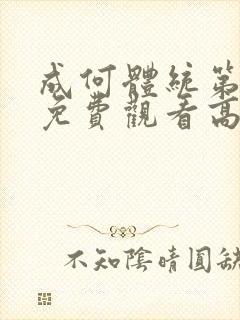 成何體統第
免費觀看高
不知陰晴圓缺